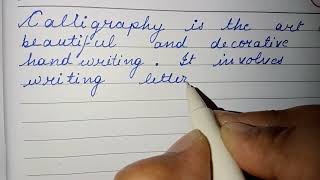 Calligraphy is the art
beautiful and decorative
handwriting. It involves
writing letter